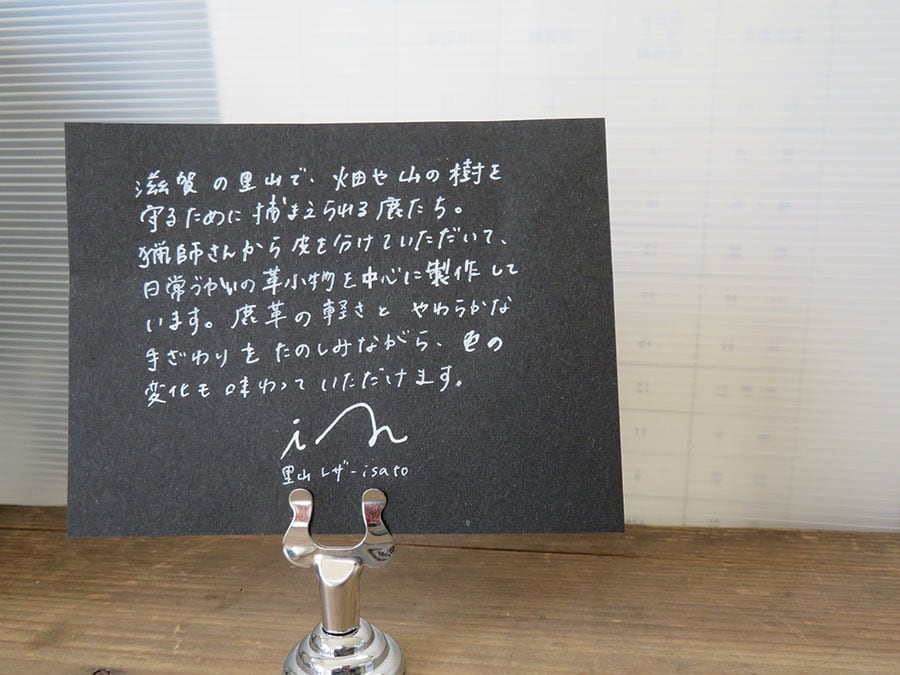 滋賀の里山で、畑や山の樹を
守るために捕まえられる鹿たち。
猟師さんから皮を分けていただいて、
日常づかいの革小物を中心に製作して
います。鹿革の軽さと やわらかな
手ざわりをたのしみながら、色の
変化も味わっていただけます。
里山レザー isato